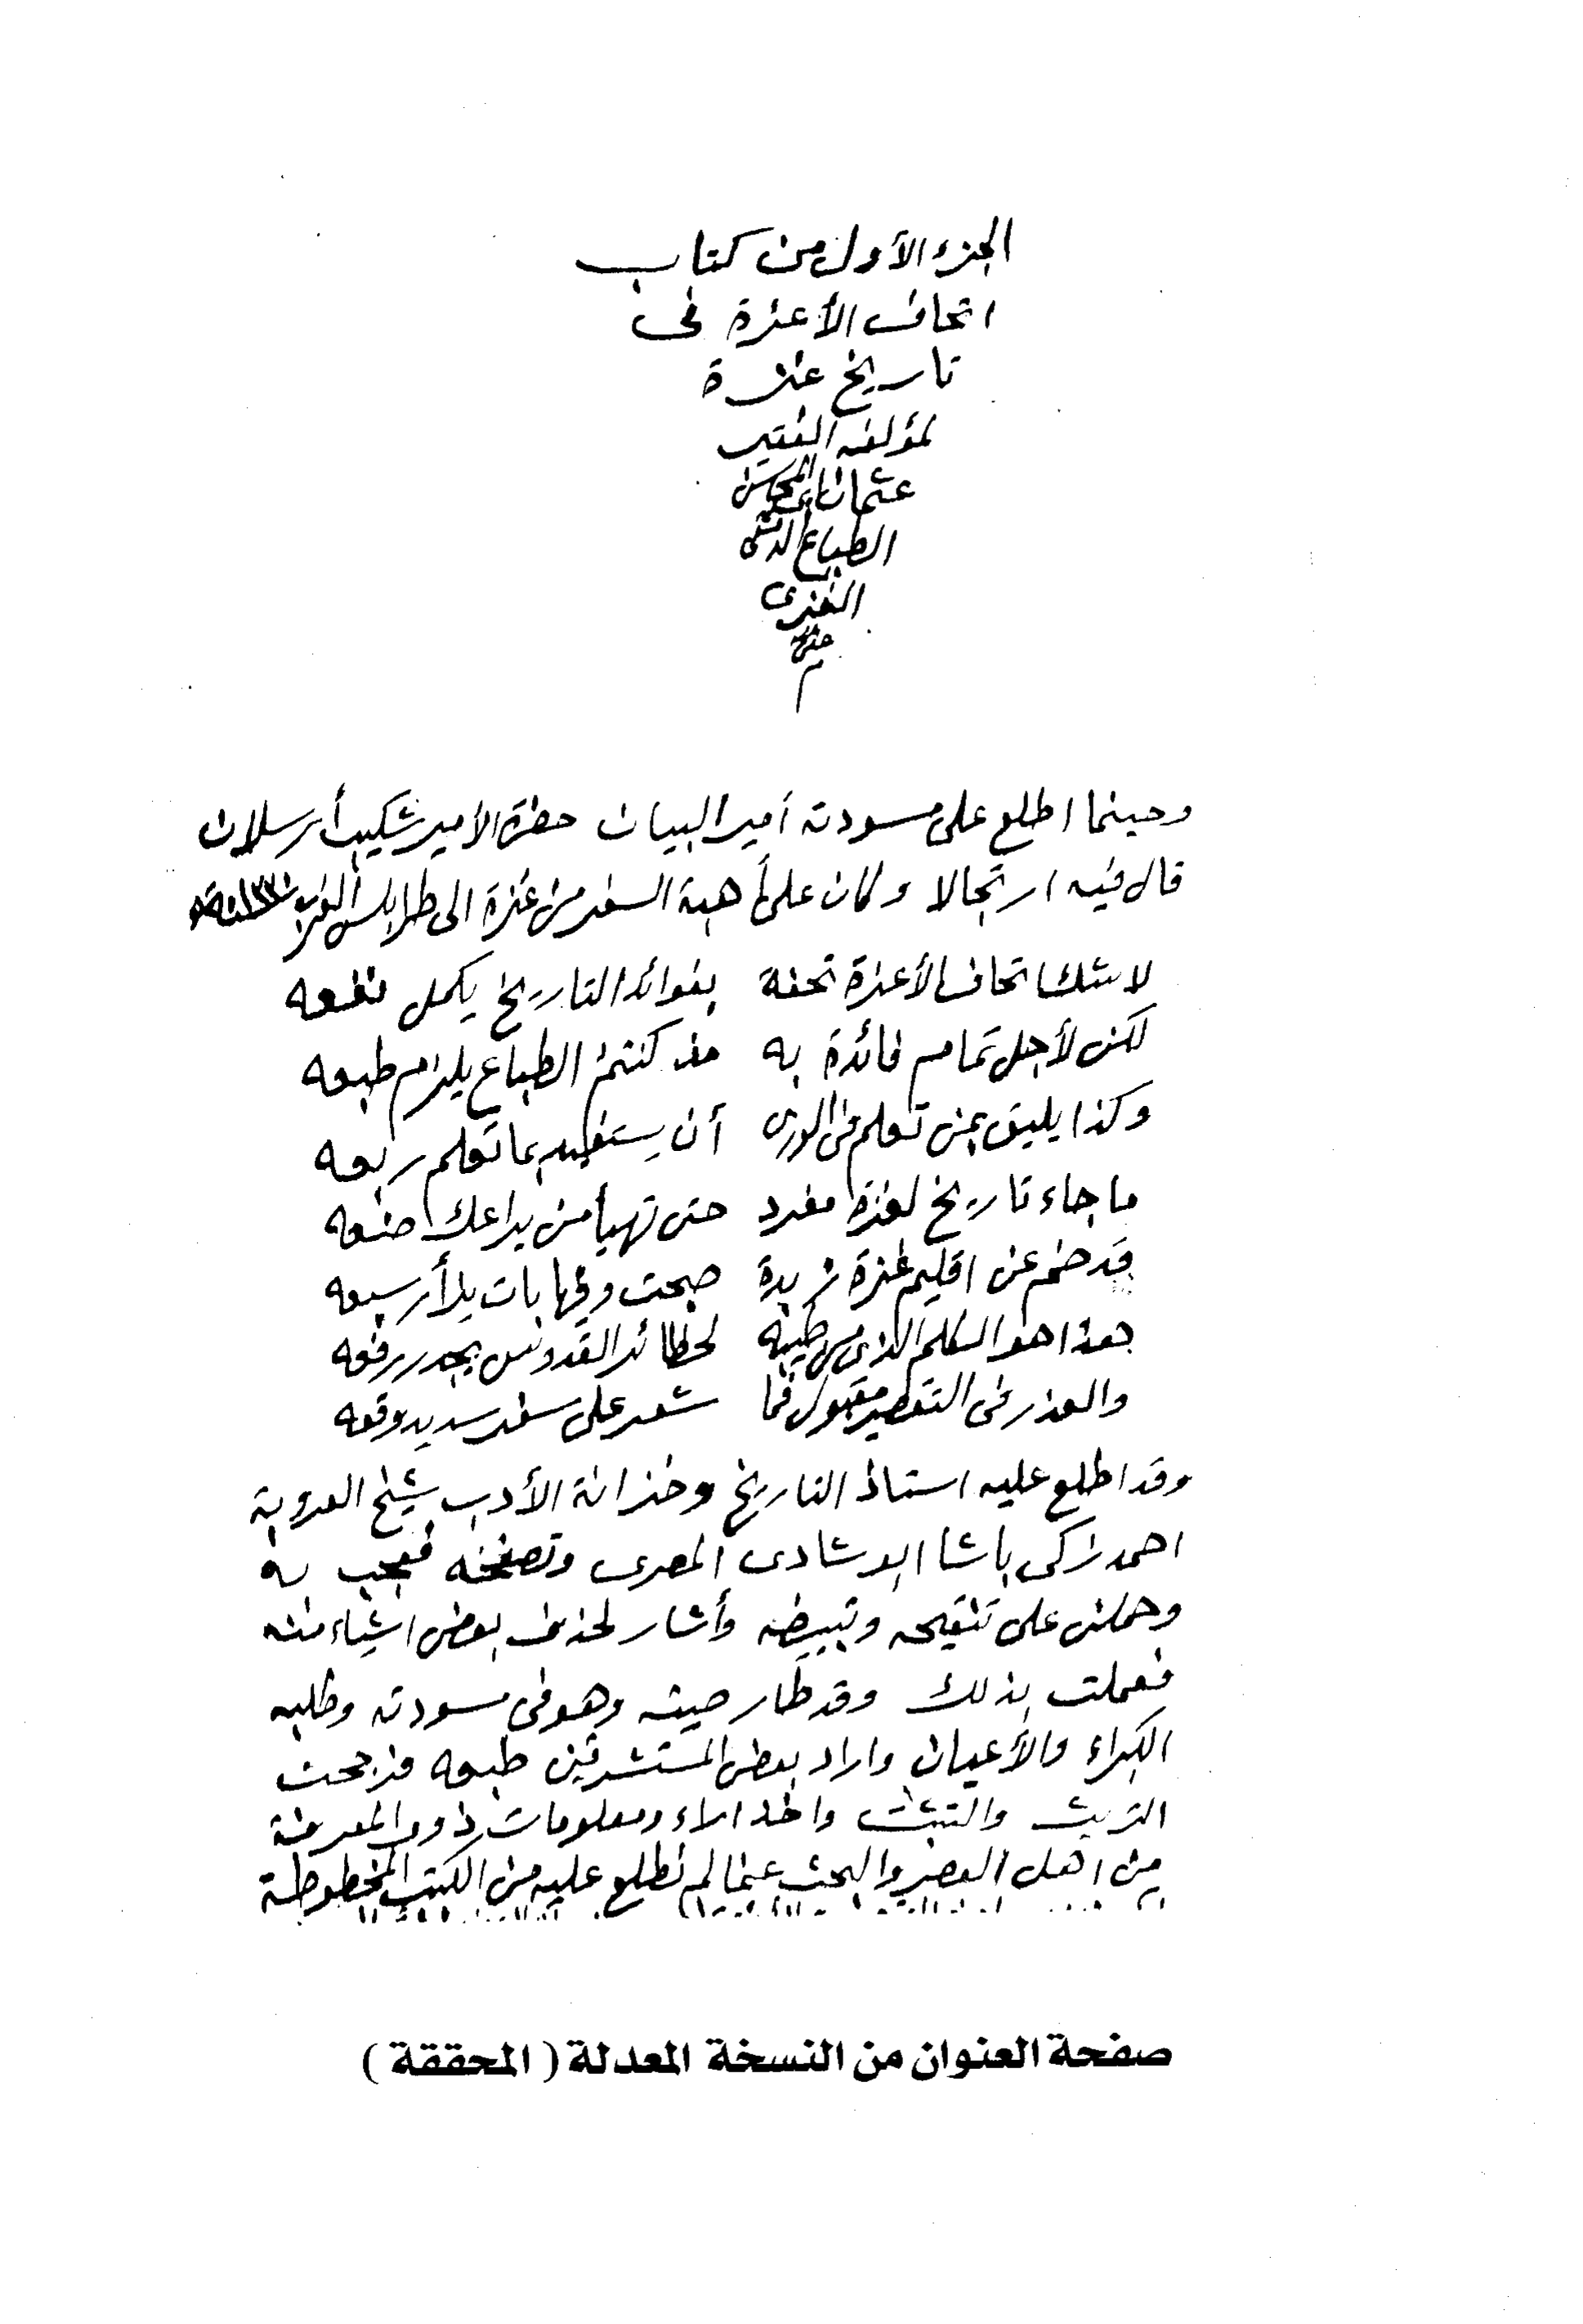 الجزء الأول من كتاب
اتحاف الأعزة في
تاريخ غزة
لمؤلفه الفقير
عثمان
الطباع
الغزى
وحينما اطلع على مسودته أمير البيان حضرة الأمير شكيب أرسلان
قال فيه ارتجالا وكان على أهبة السفر من غزة الى طرابلس الغرب
لا شك اتحاف الأعزة تحفة بفوائد التاريخ يكمل نفعه
لكن لأجل تمام فائدة به مذ كنتم الطباع يلزم طبعه
وكذا يليق بمن تعلم في الورى أن يستفيد بما تعلم ربعه
ما جاء تاريخ لغزة مفرد حتى تهيأ من يراعك صنعه
قد ضم عن اقليم غزة زبدة صحت وفيها بات يلأر سبعه
هذا هو الكلم الذي من طيبه لحظائر القدوس يجدر رفعه
والعذر في التقصير مقبول فما شعر على سفر سديد وقعه
وقد اطلع عليه استاذ التاريخ وخزانة الأدب شيخ العروبة
احمد زكى باشا المصرى وتصفحه فعجب به
وحملنى على تنقيحه وتبييضه وأشار لحذف بعض اشياء منه
فعملت بذلك وقد طار صيته وهو في مسودته وطلبه
الكبراء والأعيان واراد بعض المستشرقين طبعه فرجحت
التريث والتثبت واخذ اراء ومعلومات ذوى المعرفة
من اهل العصر والبحث عما لم نطلع عليه من الكتب المخطوطة
صفحة العنوان من النسخة المعدلة ( المحققة )